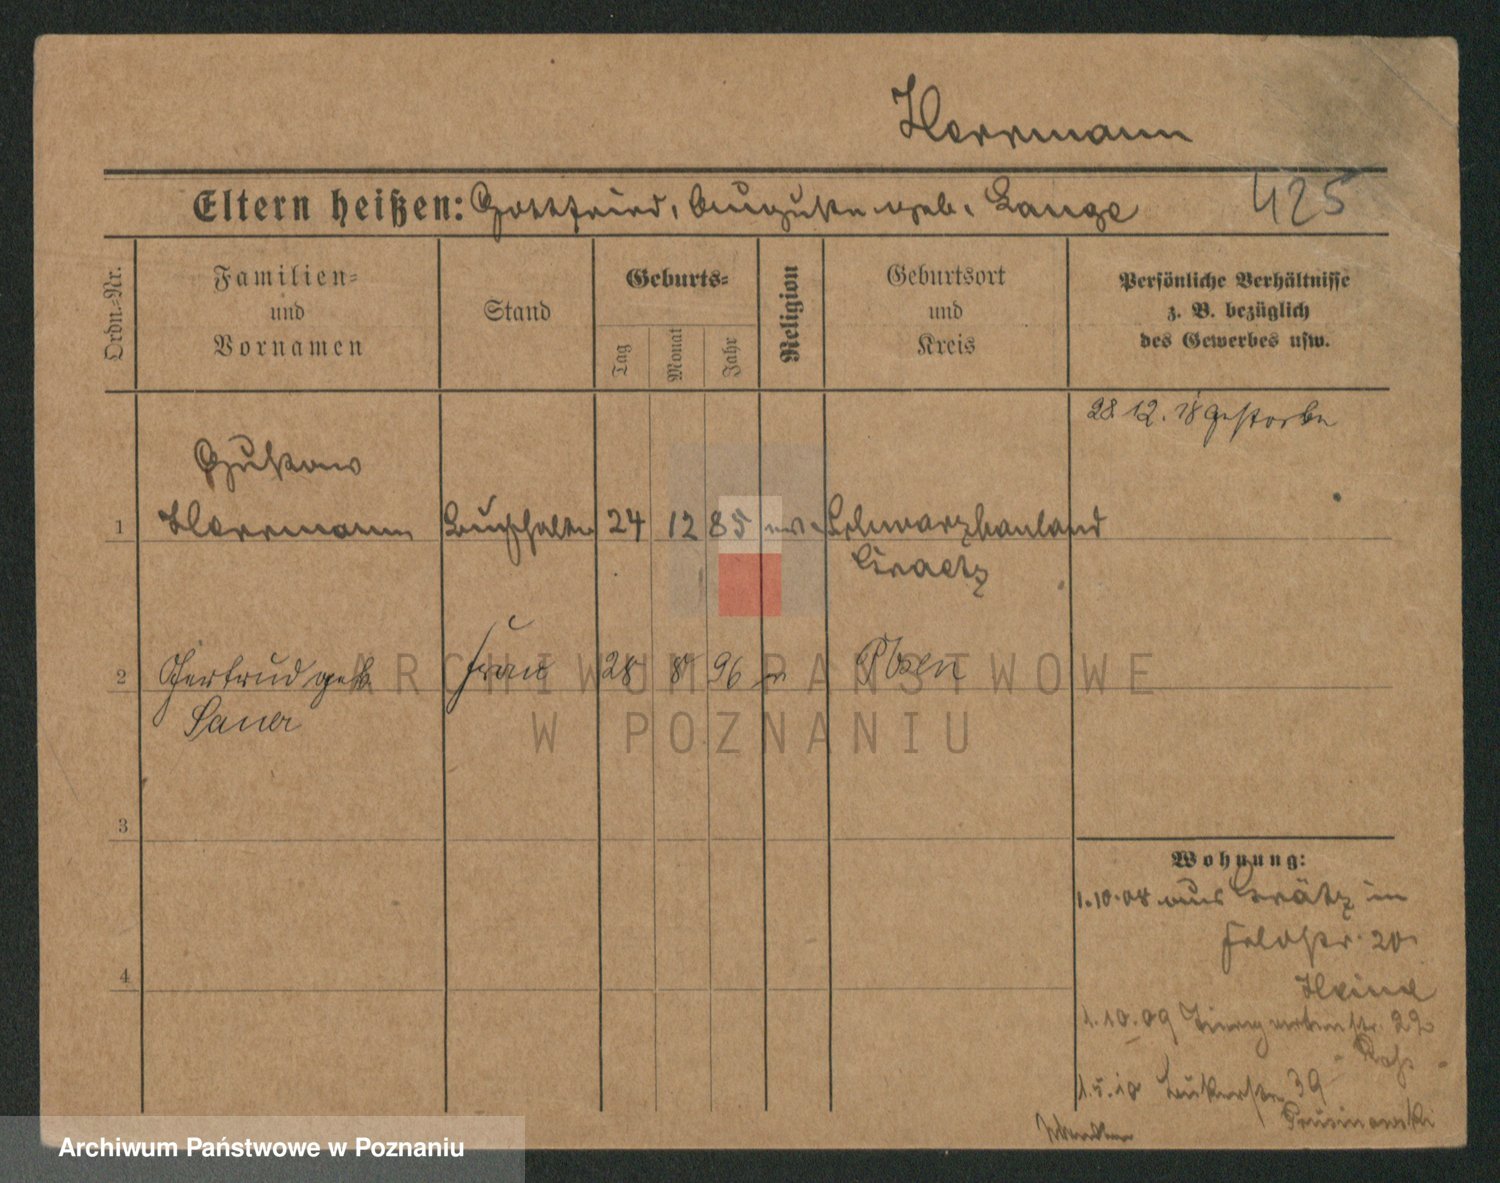 Herrmann
Eltern heißen: Gottfried, Auguste geb. Lange 425
Ordn.-Nr.
Familien-
und
Vornamen
Stand
Geburts-
Tag
Monat
Jahr
Religion
Geburtsort
und
Kreis
Persönliche Verhältnisse
z. B. bezüglich
des Gewerbes usw.
28 12. 18 gestorben
Gustaw
1 Herrmann Buchhalter 24 12 85 ev. Schwarzhauland
Graetz
2 Gertrud geb Frau 28 8 96 Posen
Sauer
ARCHIWUM PAŃSTWOWE
W POZNANIU
3
4
Wohnung:
1.10.08 aus Grätz in
Feldstr. 20
Heind
1.10.09 Tiergartenstr. 22
1.5.10 Bukerstr. 39
Prusinowski
Wenden
Archiwum Państwowe w Poznaniu